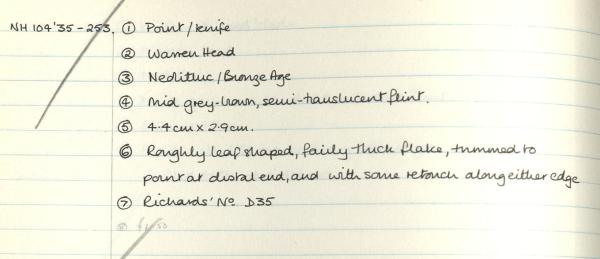 NH 104'35-253. ① Point/knife
② Warren Head
③ Neolithic/Bronze Age
④ Mid grey-brown, semi-translucent flint.
⑤ 4.4cm x 2.9cm.
⑥ Roughly leaf shaped, fairly thick flake, trimmed to
point at distal end, and with some retouch along either edge
⑦ Richards' No D35
⑧